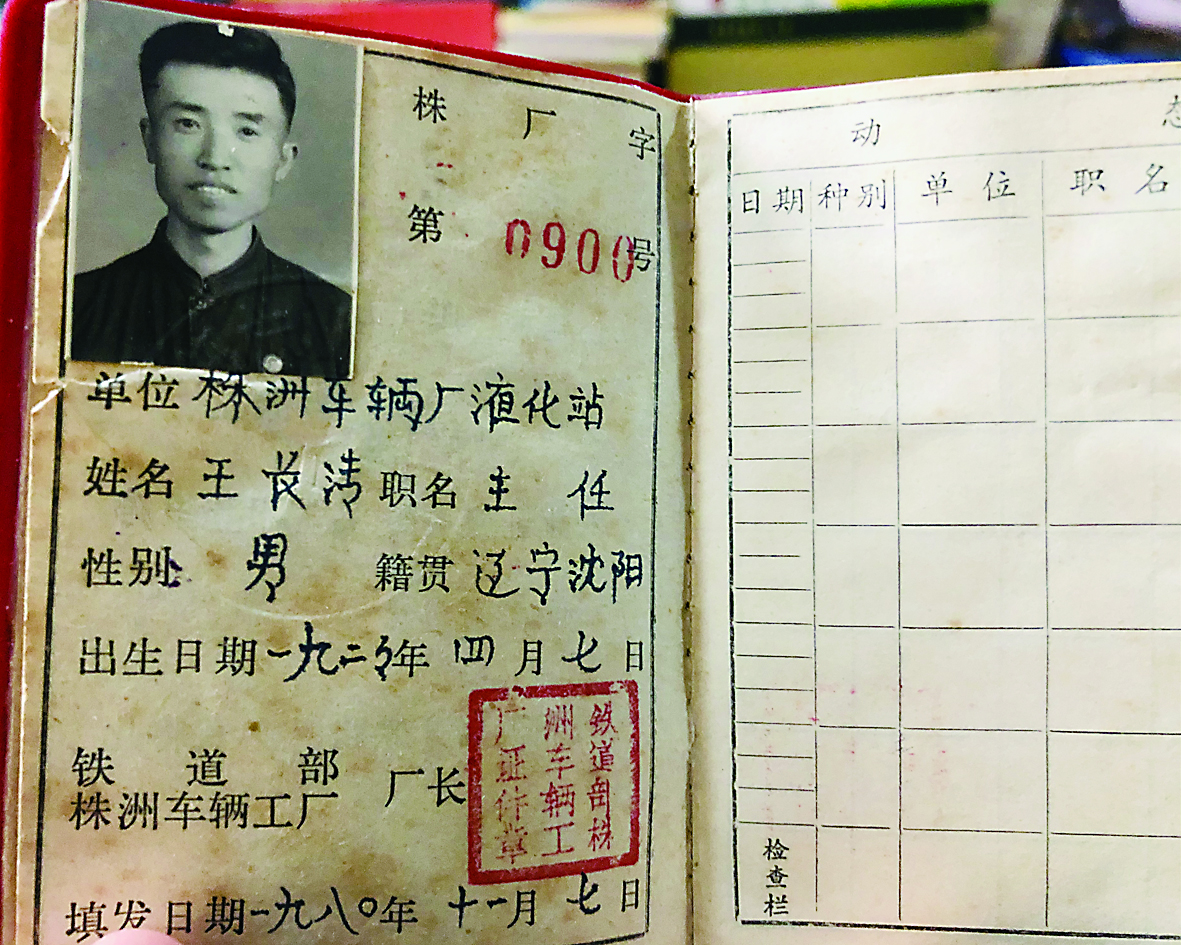 株厂字
第0900号
单位 株洲车辆厂液化站
姓名 王长清 职名 主任
性别 男 籍贯 辽宁沈阳
出生日期 一九二 年 四月七日
铁道部
株洲车辆工厂 厂长
铁道部株
洲车辆工
厂证件章
填发日期 一九八〇年 十一月七日
动态
日期 种别 单位 职名
检查栏